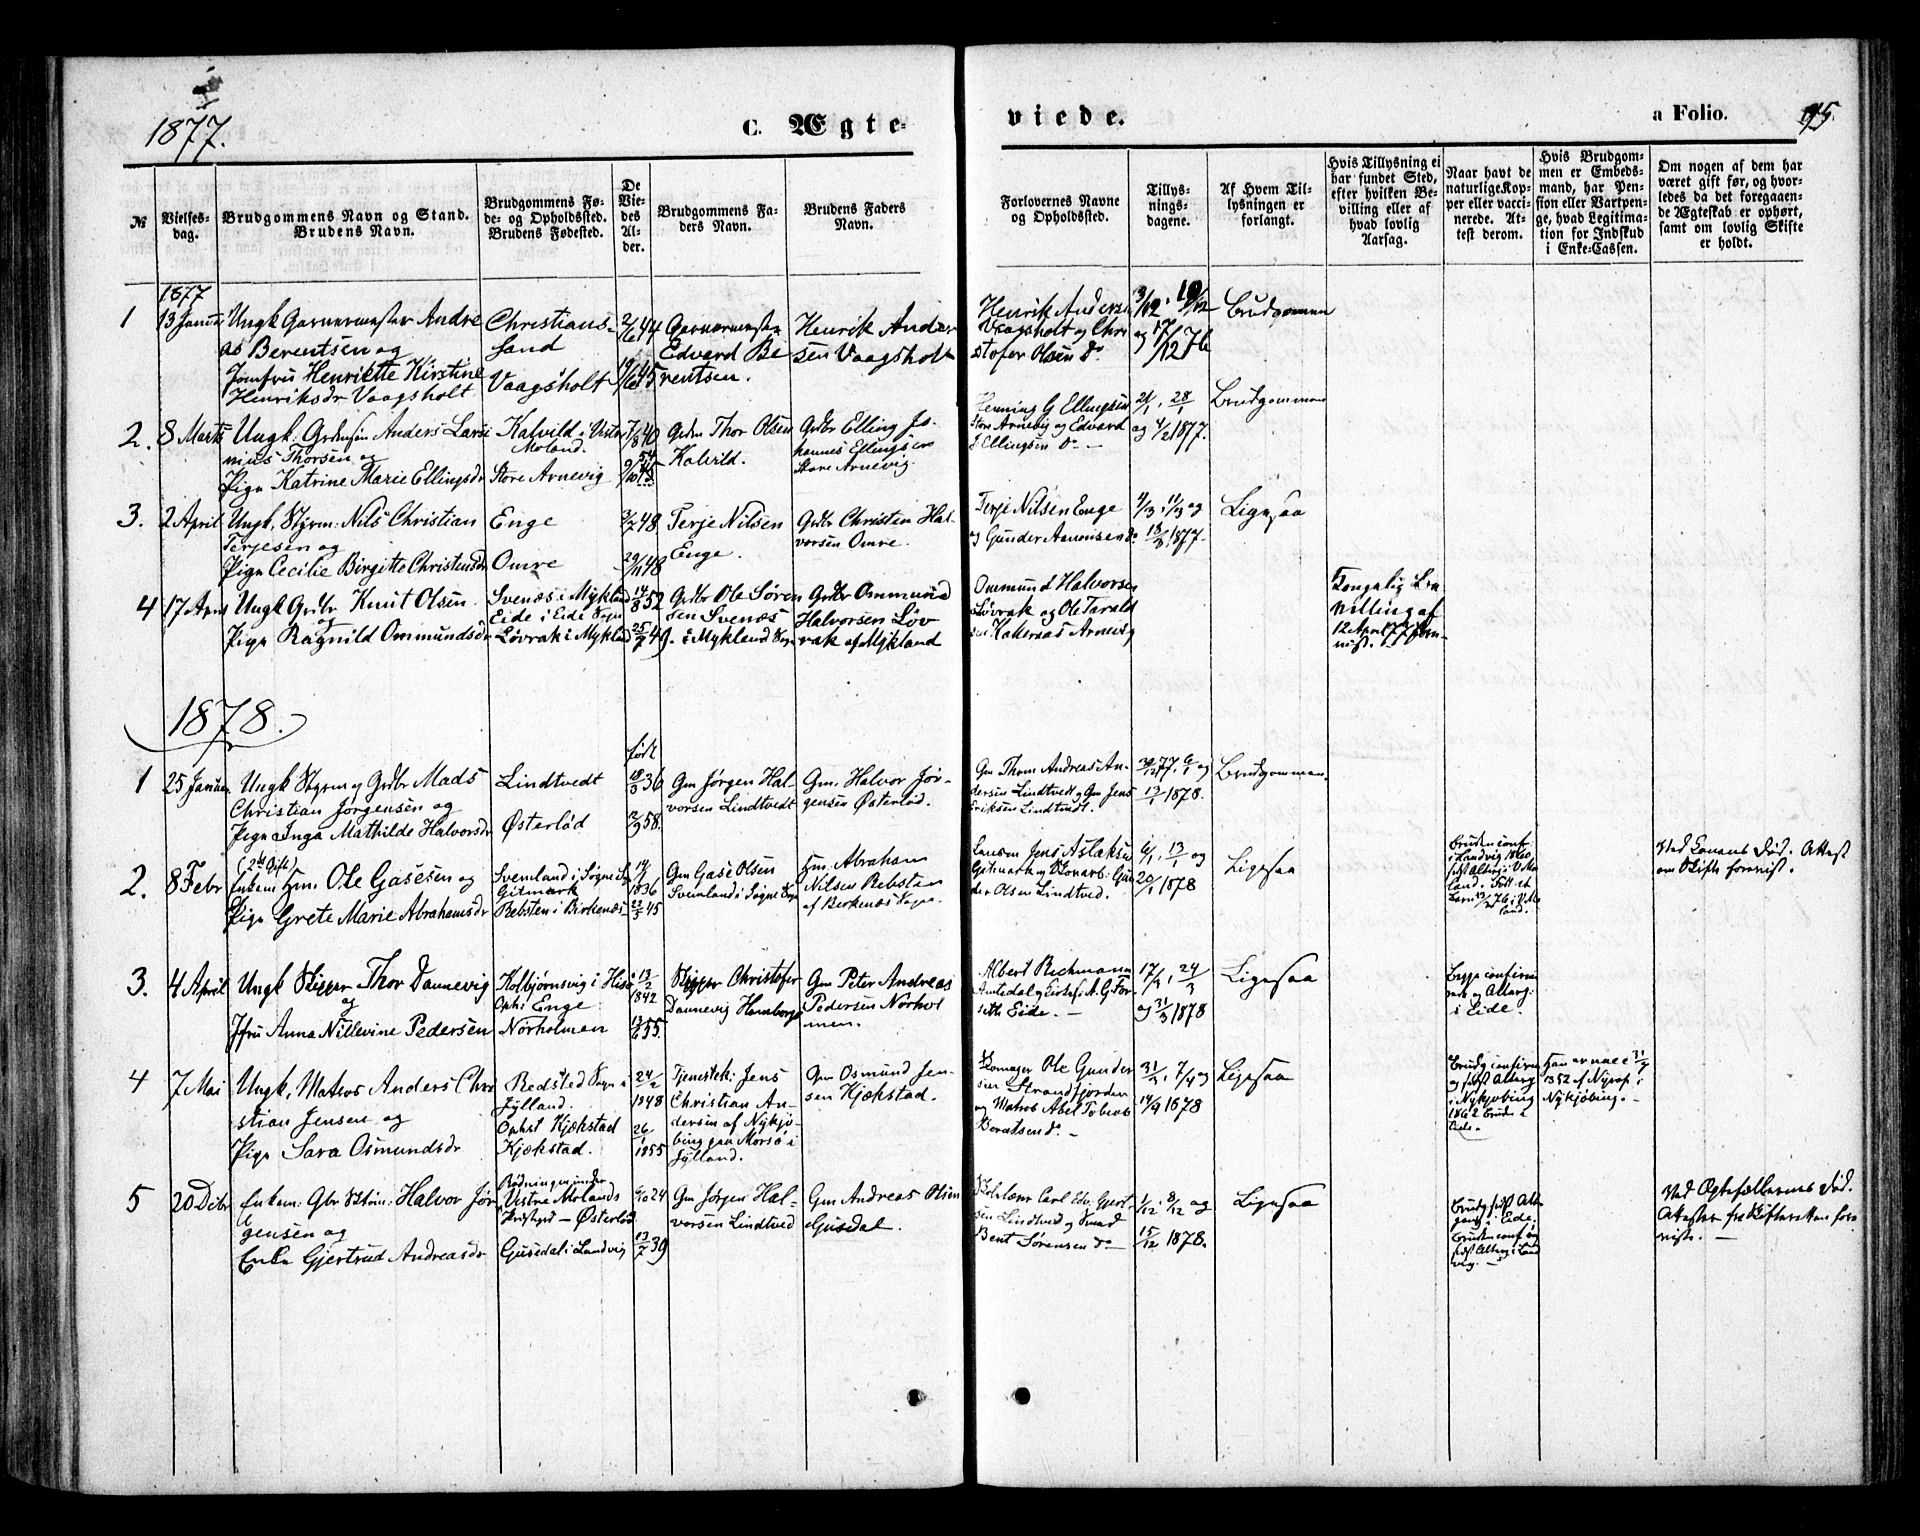 1877.
C. Ægte-
viede.
a Folio.
95.
№
Vielses-
dag.
Brudgommens Navn og Stand.
Brudens Navn.
Brudgommens Fø-
de- og Opholdssted.
Brudens Fødested.
De
Vie-
des
Al-
der.
Brudgommens Fa-
ders Navn.
Brudens Faders
Navn.
Forlovernes Navne
og Opholdssted.
Tillys-
nings-
dagene.
Af Hvem Til-
lysningen er
forlangt.
Hvis Tillysning ei
har fundet Sted,
efter hvilken Be-
villing eller af
hvad lovlig
Aarsag.
Naar havt de
naturlige Kop-
per eller vacci-
nerede. At-
test derom.
Hvis Brudgom-
men er Embeds-
mand, har Pen-
sion eller Vartpen-
ge, hvad Legitima-
tion for Indskud
i Enke-Cassen.
Om nogen af dem har
været gift før, og hvor-
ledes da det foregaaen-
de Ægteskab er ophørt,
samt om lovlig Skifte
er holdt.
1877
1
13 Januar
Ungk Garvermester Andre
as Berentsen og
Jomfru Henriette Kirstine
Henriksdr Vaagsholt
Christians-
sand
Vaagsholt
2/6 44
19/6 45
Garvermester
Edvard Be
rentsen.
Henrik Ander
sen Vaagsholt
Henrik Anders
Vaagsholt og Chri
stofer Olsen do.
3/12. 10/12
og 17/12 76
Brudgommen
2.
8 Marts
Ungk: Grdmsn Anders Lars
nius Thorsen og
Pige Katrine Marie Ellingsdr
Kalvild i Vestre
Moland.
Store Arnevig
7/8 40
9/10 54
Grdm Thor Olsen
Kalvild.
Grdbr Elling Jo-
hannes Ellingsen
Store Arnevig.
Henning G Ellingsen
Store Arnevig og Edvard
J Ellingsen do —
21/1. 28/1
og 4/2 1877.
Brudgommen
3.
2 April
Ungk. Styrm: Nils Christian
Terjesen og
Pige Cecilie Birgitte Christensdr
Enge
Omre
3/2 48
29/11 48
Terje Nilsen
Enge.
Grdbr Christen Hal-
vorsen Omre.
Terje Nilsen Enge
og Gunder Aanonsen do
4/3. 11/3 og
18/3 1877.
Ligesaa
4
17 April
Ungk Grdbr Knut Olsen
og
Pige Ragnild Ommundsdr
Svenæs i Mykland
Eide i Eide Sogn
Løvrak i Mykland
14/8 52
25/7 49
Grdbr Ole Søren
sen Svenæs
i Mykland Sogn
Grdbr Ommund
Halvorsen Løv
rak af Mykland
Ommund Halvorsen
Løvrak og Ole Tarald
sen Kalernæs Arnevig
Kongelig Be
villing af
12 April 77 frem
vist.
1878.
født
1
25 Januar
Ungk Styrm og Grdbr Mads
Christian Jørgensen og
Pige Inga Mathilde Halvorsdr
Lindtvedt
Østerlød
18/3 36
2/9 58.
Gm Jørgen Hal-
vorsen Lindtvedt
Gm. Halvor Jør-
gensen Østerlød.
Gm Thom Andreas An-
dersen Lindtvedt og Gm Jens
Eriksen Lindtvedt.
30/12 77. 6/1 og
13/1 1878.
Brudgommen.
2.
8 Febr
(2det Gift)
Enkem Hm. Ole Gasesen og
Pige Grete Marie Abrahamsdr
Svemland i Søgne Sg
Gitmark
Rebsten i Birkenæs
14/1
1836
22/5 45
Gm Gase Olsen
Svemland i Søgne Sogn
Hm. Abraham
Nilsen Rebsten
af Birkenæs Sogn.
Jens Aslaksen
Gitmark og Gun
der Olsen Lindtved.
6/1. 13/1 og
20/1 1878
Ligesaa
Bruden conf
i Landvig 1860
sidst Alterg: i V Mo
land. Født et
Barn 13/2 76 i V Mo
land.
Ved Konens Død. Attest
om Skifte forevist.
3.
4 April
Ungk Skipper Thor Dannevig
og
Jfru Anna Nillevine Pedersen
Kolbjørnsvig i Hisø
Oph: Enge
Norholmen
13/2
1842
13/6 55.
Skipper Christofer
Dannevig Homborge
Gm Peter Andreas
Pedersen Norhol
men.
Albert Richmann
Amtedal og A. G. For
seth Eide. —
17/3. 24/3
og 31/3 1878
Ligesaa
Begge confirm
rede og Alterg.
i Eide.
4
7 Mai
Ungk. Matros Anders Chri
stian Jensen og
Pige Sara Osmundsdr
Redsted Sogn i
Jylland.
Ophst Kjøkstad
Kjøkstad.
24/2
1848
26/1
1855
Tjenestek: Jens
Christian An-
dersen af Nykjø-
bing paa Morsø i
Jylland.
Gm Osmund Jen-
sen Kjøkstad.
Skomager Ole Gunder
sen Strandfjorden
og Matros Abel Tobias
Berntsen do —
31/3. 7/4 og
14/4 1878
Ligesaa
Brudg confirm
og sidst Alterg
i Nykjøbing
1862 Bruden i
Eide.
Han er vacc 31/7
1852 af Nyrop i
Nykjøbing. —
5
20 Dcbr
Enkem: Gbr Skøm: Halvor Jør
gensen og
Enke Gjertrud Andreasdr
Rødningen under
Vestre Molands
Præstegd — Østerlød
Gusedal i Landvig
6/10 24
13/7 39
Gm Jørgen Hal-
vorsen Lindtved
Gm Andreas Olsen
Gusedal.
Skolelærer Carl Edv. Gjert
sen Lindtved og Smed
Bent Sørensen do —
1/12. 8/12 og
15/12 1878.
Ligesaa
Brudg sidst Alter
gang i Eide,
Bruden conf og
sidst Alterg i Land
vig. —
Ved Ægtefællernes Død.
Attester fra Skifteretten fore
vist. —